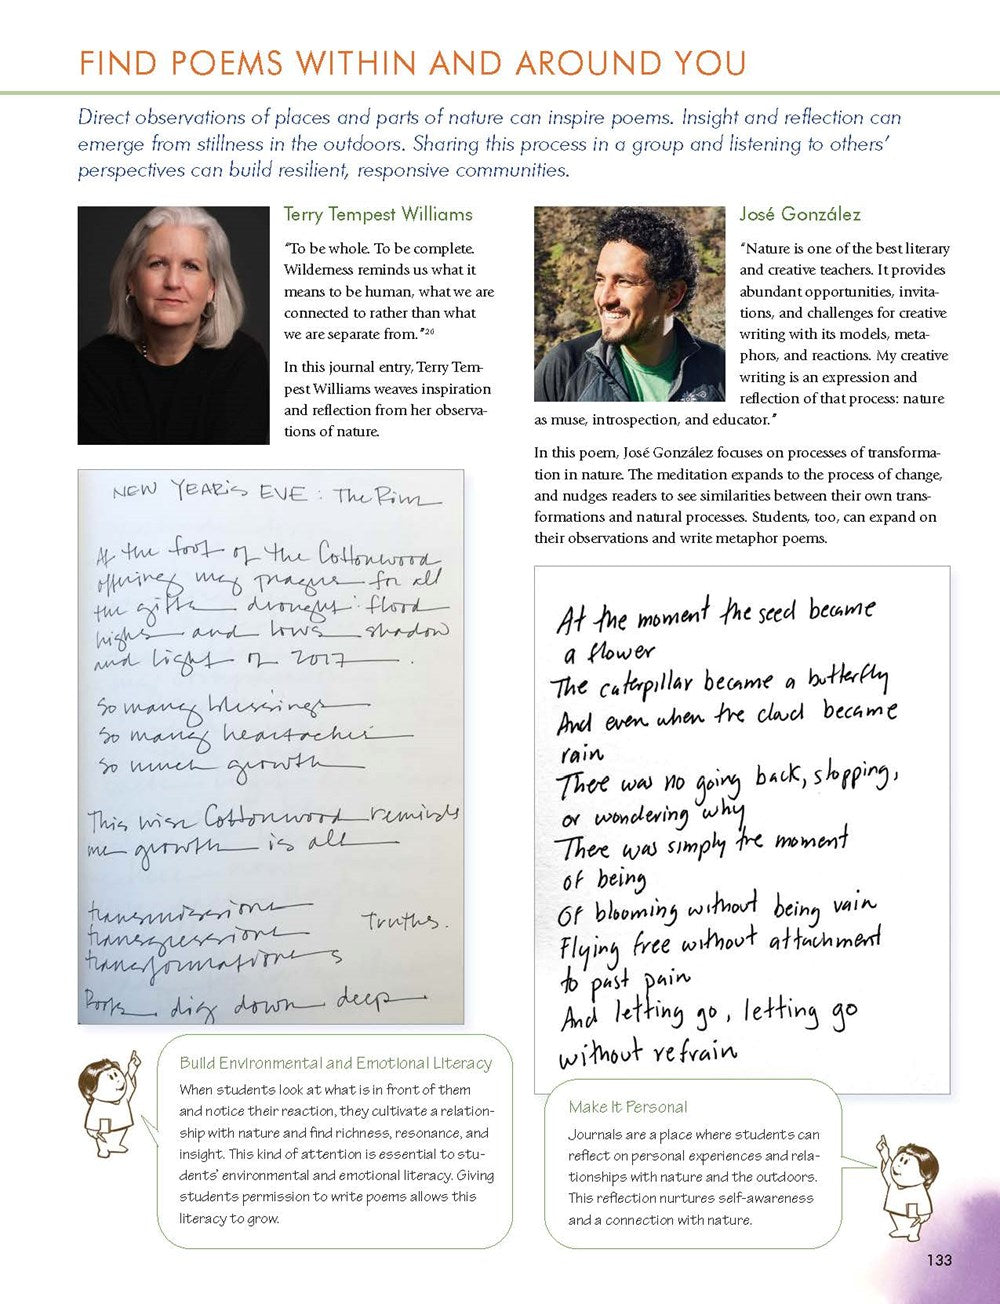 FIND POEMS WITHIN AND AROUND YOU
Direct observations of places and parts of nature can inspire poems. Insight and reflection can
emerge from stillness in the outdoors. Sharing this process in a group and listening to others’
perspectives can build resilient, responsive communities.
Terry Tempest Williams
“To be whole. To be complete.
Wilderness reminds us what it
means to be human, what we are
connected to rather than what
we are separate from.”26
In this journal entry, Terry Tem-
pest Williams weaves inspiration
and reflection from her observa-
tions of nature.
NEW YEAR'S EVE : The Rim
At the foot of the Cottonwood
offering my prayers for all
the gifts drought : flood
highs and lows shadow
and light of 2017
So many blessings
So many heartaches
So much growth
This wise Cottonwood reminds
me growth is all
transmissions
transgressions
transformations
Truths.
Roots dig down deep
Build Environmental and Emotional Literacy
When students look at what is in front of them
and notice their reaction, they cultivate a relation-
ship with nature and find richness, resonance, and
insight. This kind of attention is essential to stu-
dents’ environmental and emotional literacy. Giving
students permission to write poems allows this
literacy to grow.
José González
“Nature is one of the best literary
and creative teachers. It provides
abundant opportunities, invita-
tions, and challenges for creative
writing with its models, meta-
phors, and reactions. My creative
writing is an expression and
reflection of that process: nature
as muse, introspection, and educator.”
In this poem, José González focuses on processes of transforma-
tion in nature. The meditation expands to the process of change,
and nudges readers to see similarities between their own trans-
formations and natural processes. Students, too, can expand on
their observations and write metaphor poems.
At the moment the seed became
a flower
The caterpillar became a butterfly
And even when the cloud became
rain
There was no going back, stopping,
or wondering why
There was simply the moment
of being
Of blooming without being vain
Flying free without attachment
to past pain
And letting go, letting go
without refrain
Make It Personal
Journals are a place where students can
reflect on personal experiences and rela-
tionships with nature and the outdoors.
This reflection nurtures self-awareness
and a connection with nature.
133